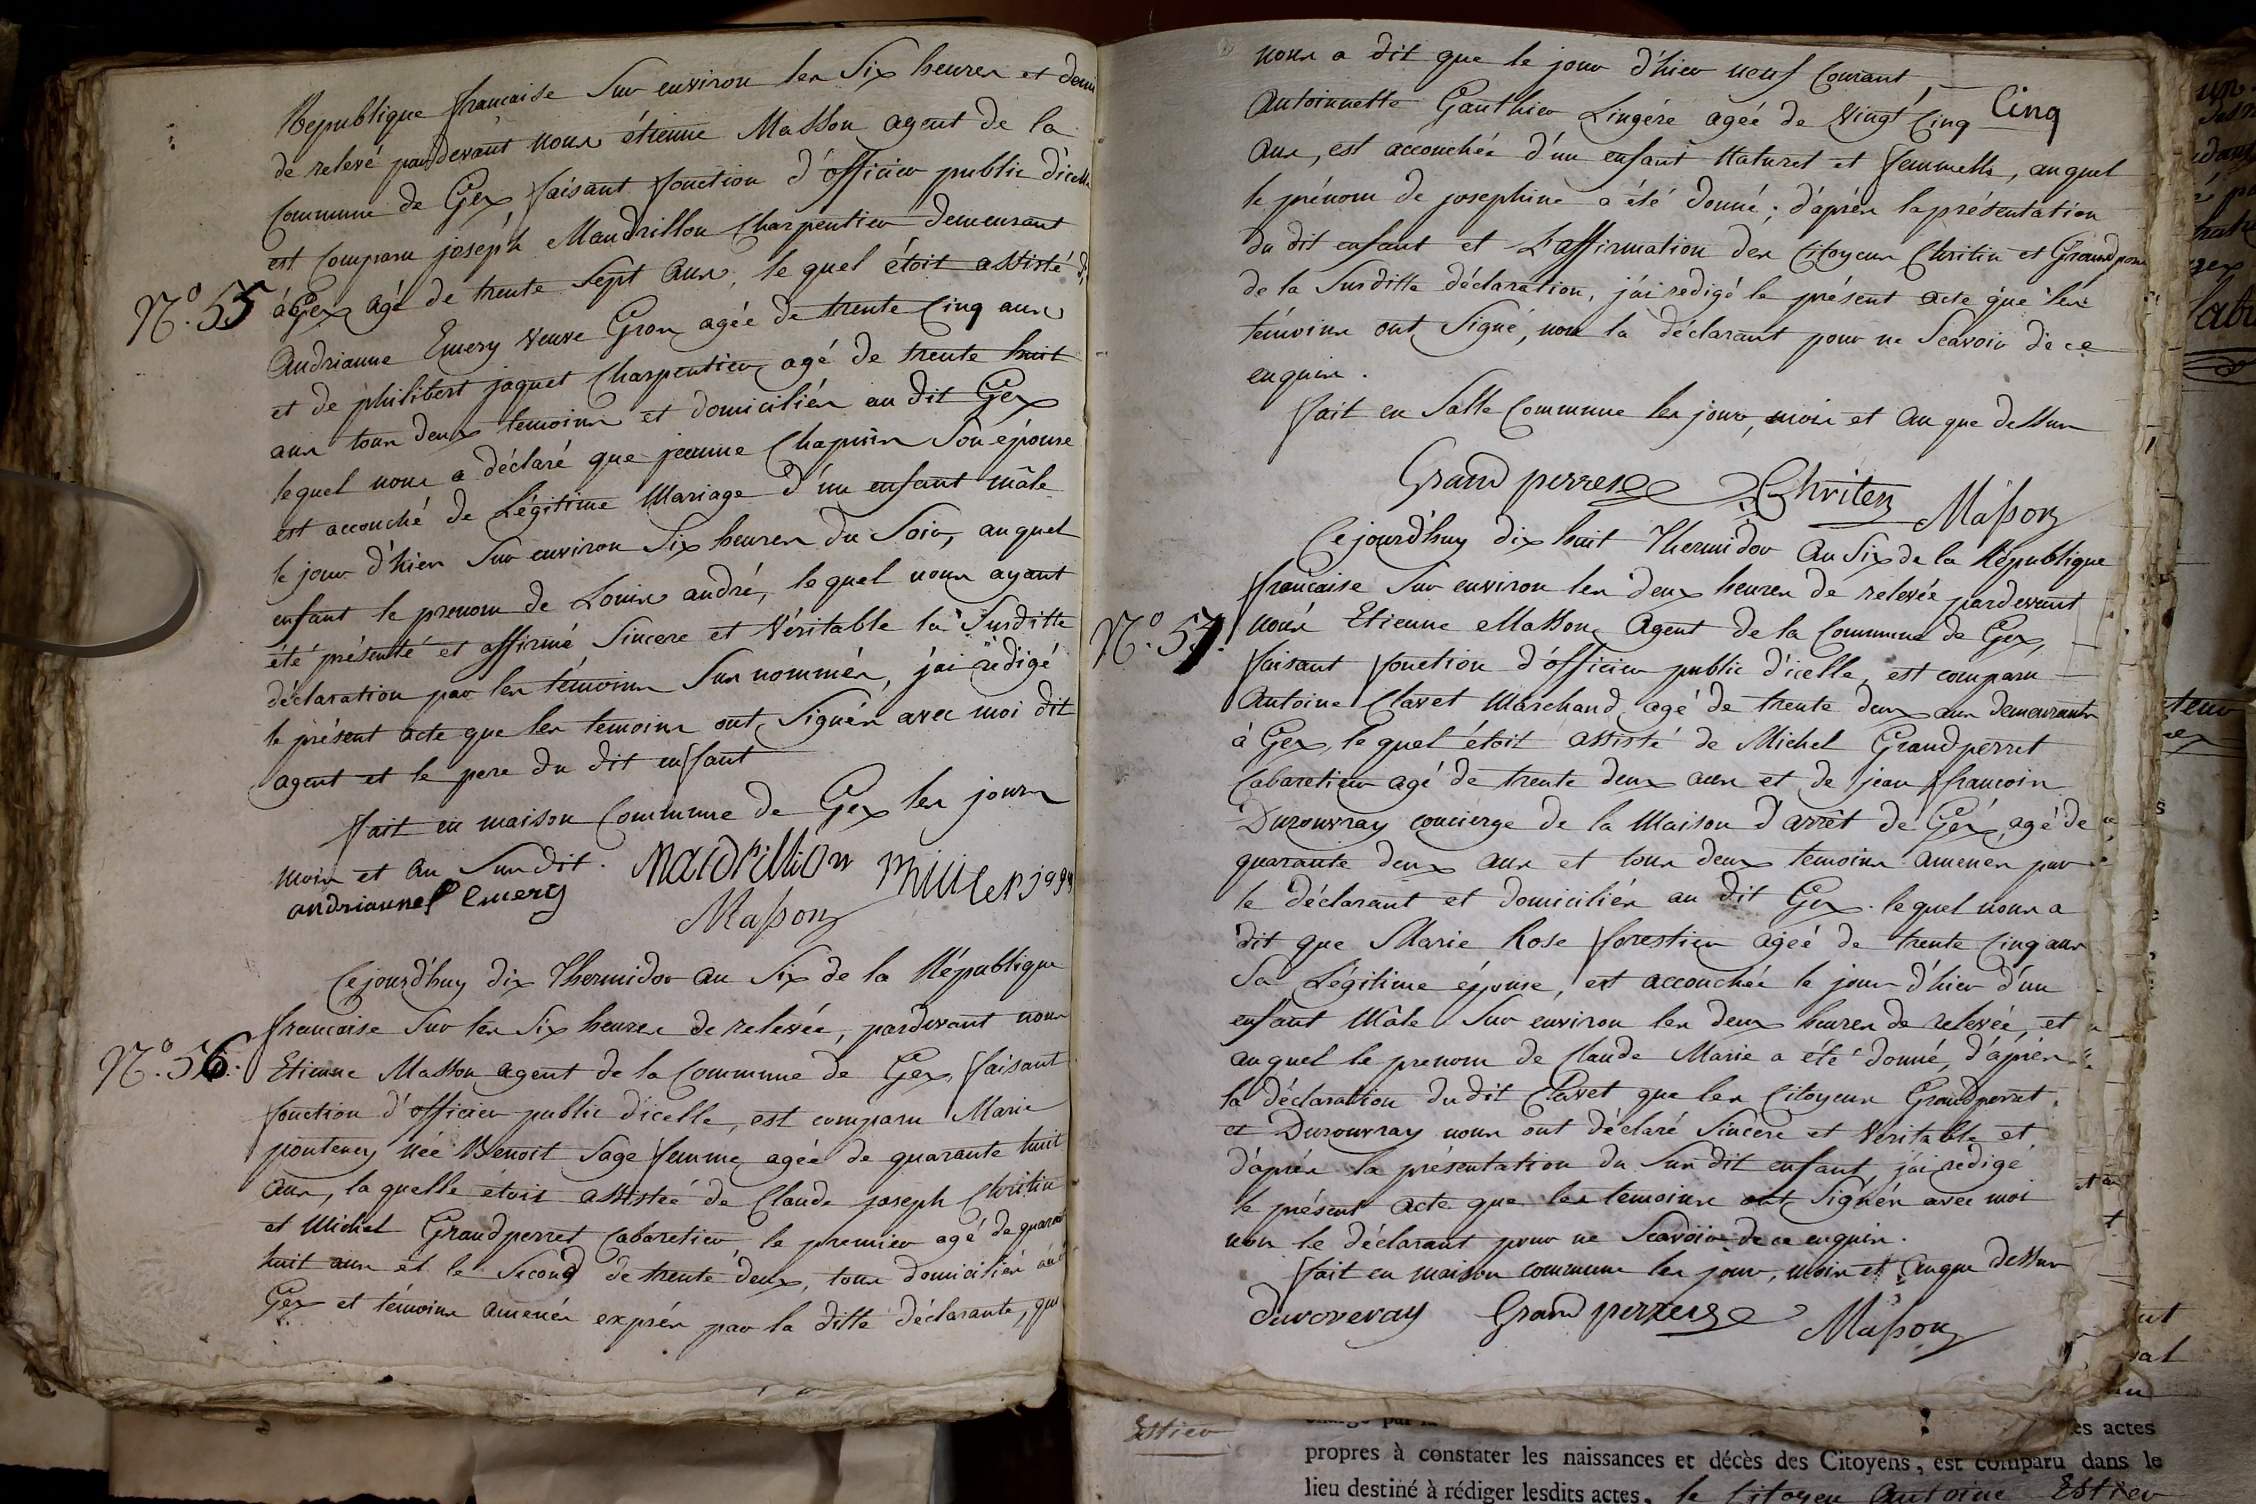 République française Sur environ les Six heures et demi
de relevé pardevant nous étienne Masson agent de la
Commune de Gex faisant fonction d'officier public d'icelle
est Comparu joseph Mandrillon Charpentier demeurant
N.º 55
à Gex agé de trente Sept ans, le quel étoit assisté d'
Andrianne Emery Veuve Gros agée de trente Cinq ans
et de philibert jaquet Charpentier agé de trente huit
ans tous deux temoins et domiciliés au dit Gex
lequel nous a déclaré que jeanne Chapuis Son épouse
est accouché de Légitime Mariage d'un enfant mâle
le jour d'hier Sur environ Six heures du Soir, auquel
enfant le prenom de Louis andré, lequel nous ayant
été présenté et affirmé Sincere et Véritable la Susditte
déclaration par les témoins Sus nommés, j'ai redigé
le présent acte que les temoins ont Signés avec moi dit
agent et le pere du dit enfant
fait en maison Commune de Gex les jours
mois et an Susdit.
Mandrillion
andrianne Emery
Masson
Cejourd'huy dix Thermidor an Six de la République
francaise Sur les Six heures de relevée, pardevant nous
N.º 56.
Etienne Masson agent de la Commune de Gex, faisant
fonction d'officier public d'icelle, est comparu Marie
ponteney née Benoit Sage femme agée de quarante huit
ans, laquelle étoit assistée de Claude joseph Christin
et Michel Grandperret Cabaretier, le premier agé de quarante
huit ans et le Second de trente deux, tous domiciliés au
Gex et témoins amenés exprés par la ditte déclarante, qui
nous a dit que le jour d'hier neuf Courant,
Antoinette Gauthier Lingére agée de Vingt Cinq
Cinq
ans, est accouchée d'un enfant Naturel et femmelle, auquel
le prénom de josephine a été donné; d'aprés la présentation
du dit enfant et L'affirmation des Citoyens Christin et Grandperret
de la Susditte déclaration, j'ai redigé le présent acte que les
témoins ont Signé, non la déclarant pour ne Scavoir de ce
enquise.
fait en Salle Commune les jour, mois et an que dessus
Grand perret Christin Masson
Cejourd'huy dix huit Thermidor an Six de la République
française Sur environ les deux heures de relevée pardevant
N.º 57.
nous Etienne Masson Agent de la Commune de Gex,
faisant fonction d'officier public d'icelle, est comparu
Antoine Clavet Marchand agé de trente deux ans demeurant
à Gex, lequel étoit assisté de Michel Grandperret
Cabaretier agé de trente deux ans et de jean francois
Durouvray concierge de la Maison d'arrêt de Gex, agé de
quarante deux ans et tous deux temoins amenés par
le déclarant et domiciliés au dit Gex. lequel nous a
dit que Marie Rose forestier agée de trente Cinq ans
Sa Légitime épouse, est accouchée le jour d'hier d'un
enfant Mâle Sur environ les deux heures de relevée, et
auquel le prenom de Claude Marie a été donné, d'après
la déclaration dudit Clavet que les Citoyens Grandperret
et Durouvray nous ont déclaré Sincere et Veritable et
d'après la présentation du Susdit enfant j'ai redigé
le présent acte que les temoins ont Signés avec moi
non le déclarant pour ne Scavoir de ce enquis.
fait en maison commune les jour, mois et an que dessus
durouvray Grand perret Masson
es actes
propres à constater les naissances et décès des Citoyens, est comparu dans le
lieu destiné à rédiger lesdits actes, le Citoyen Antoine Estier
Estier